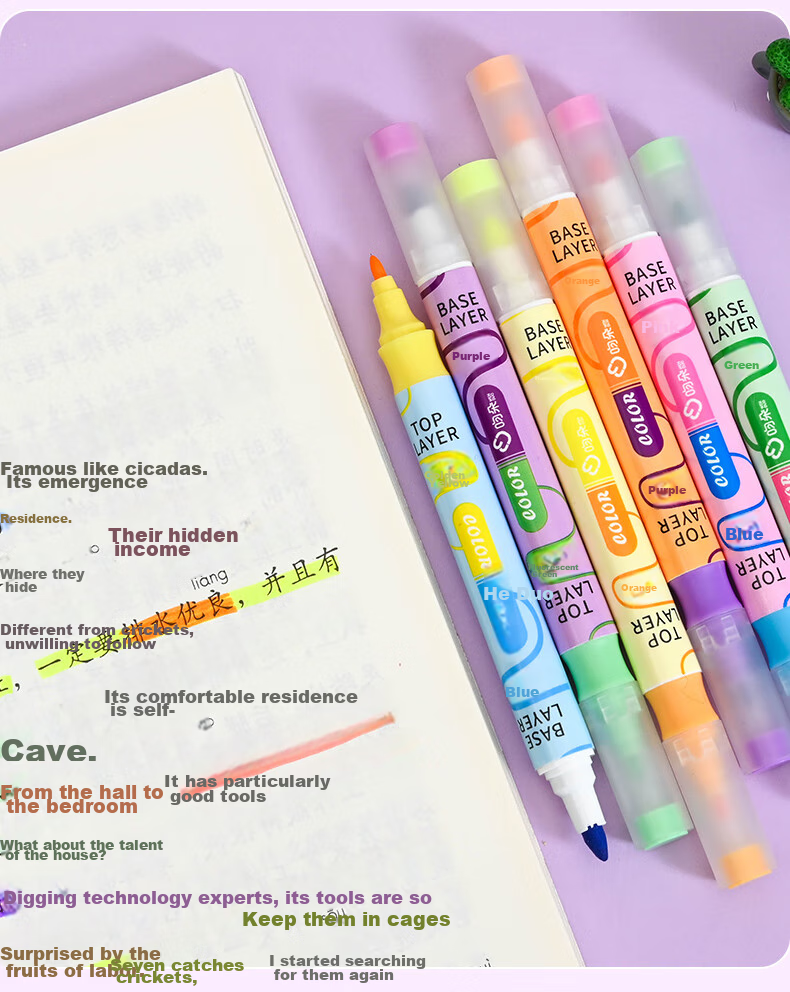 BASE
LAYER
Orange
BASE
LAYER
Purple
BASE
LAYER
BASE
LAYER
BASE
LAYER
Green
TOP
LAYER
COLOR
COLOR
COLOR
COLOR
COLOR
Purple
Blue
Orange
He Duo
Blue
TOP
LAYER
TOP
LAYER
TOP
LAYER
TOP
LAYER
BASE
LAYER
Famous like cicadas.
Its emergence
Residence.
Their hidden
income
Where they
hide
liáng
，一定要排水优良，并且有
Different from crickets,
unwilling to follow
Its comfortable residence
is self-
Cave.
It has particularly
good tools
From the hall to
the bedroom
What about the talent
of the house?
Digging technology experts, its tools are so
Keep them in cages
Surprised by the
fruits of labor.
Seven catches
crickets,
I started searching
for them again